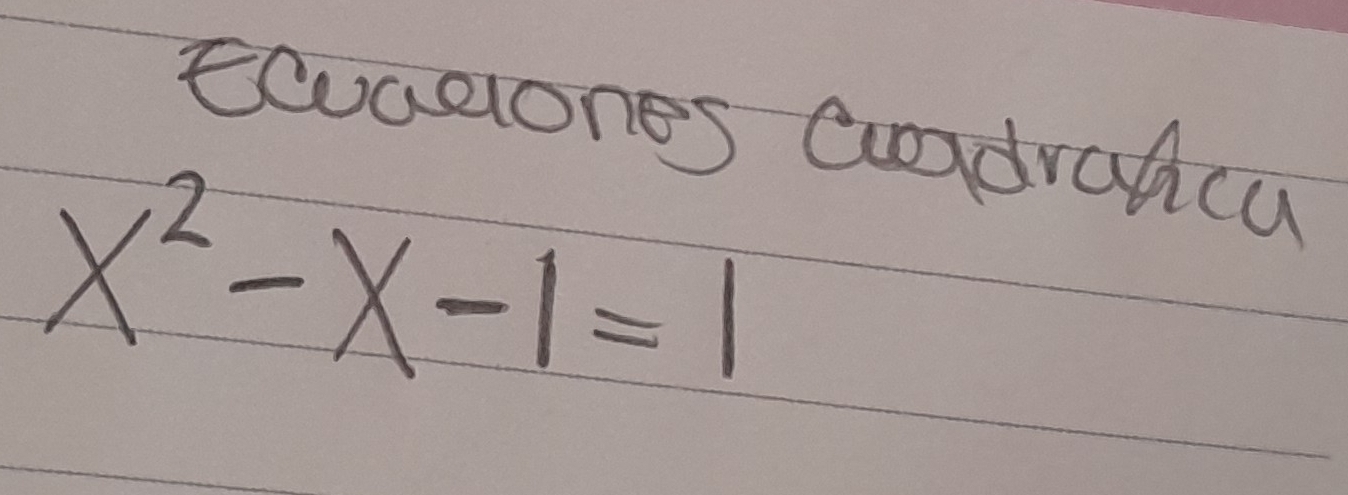 Ecuaciones Cuadratica
X² - X - 1 = 1